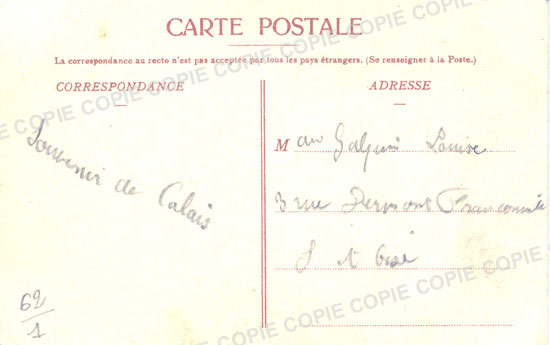 CARTE POSTALE
La correspondance au recto n'est pas acceptée par tous les pays étrangers. (Se renseigner à la Poste.)
CORRESPONDANCE
ADRESSE
Souvenir de Calais
M Louise
3 rue
62/1
COPIE COPIE COPIE COPIE COPIE COPIE COPIE COPIE
COPIE COPIE COPIE COPIE COPIE COPIE COPIE COPIE